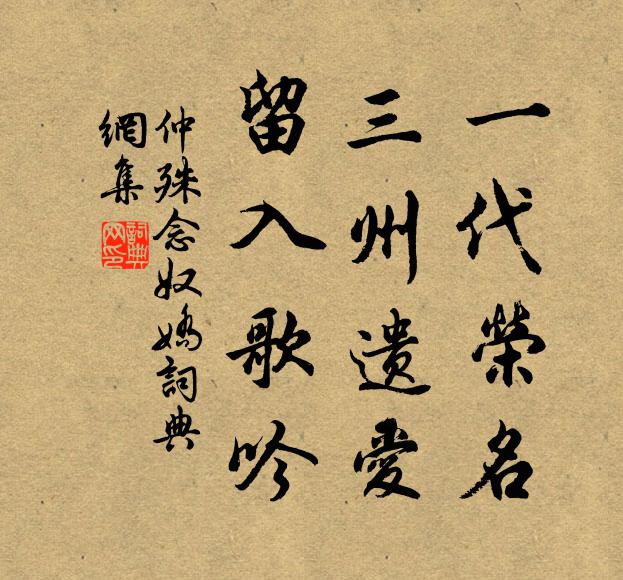 一代榮名
三州遺愛
留入歌吟
仲殊念奴嬌詞典
網集
詞典
网印